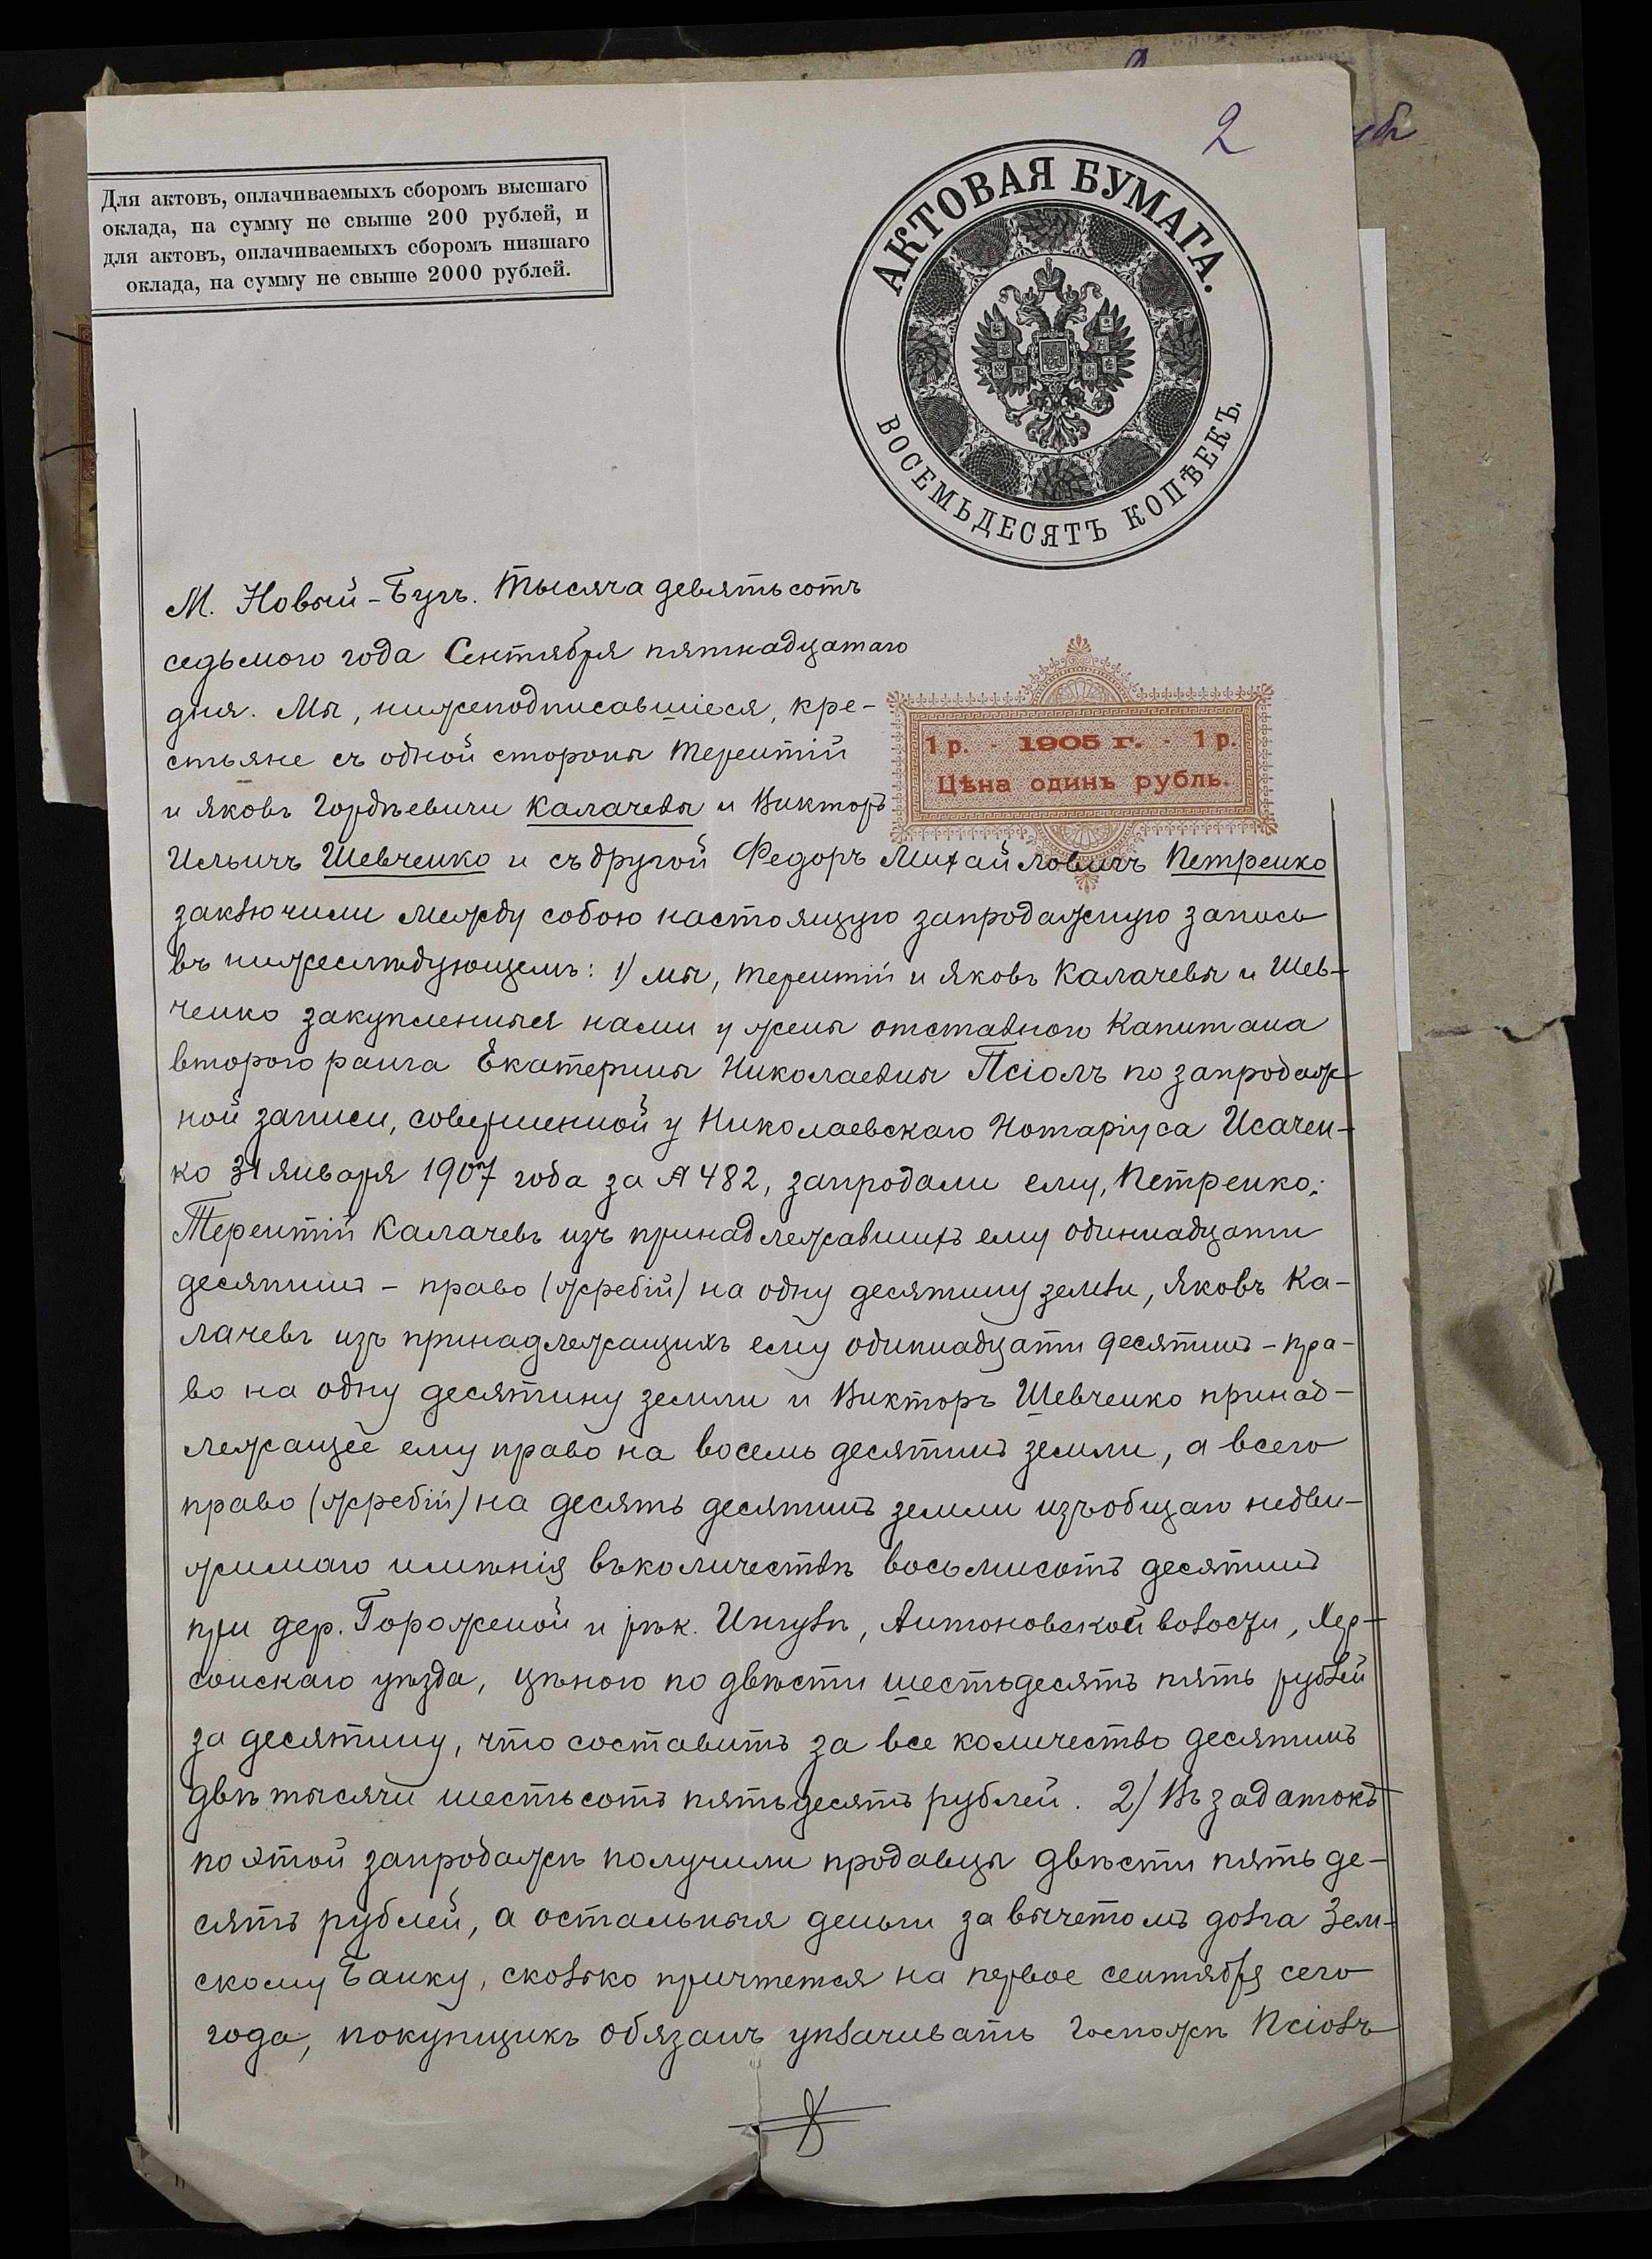 2
Для актовъ, оплачиваемыхъ сборомъ высшаго
оклада, на сумму не свыше 200 рублей, и
для актовъ, оплачиваемыхъ сборомъ низшаго
оклада, на сумму не свыше 2000 рублей.
АКТОВАЯ БУМАГА.
ВОСЕМЬДЕСЯТЪ КОПѢЕКЪ.
М. Новый-Бугъ. Тысяча девятьсотъ
седьмого года Сентября пятнадцатаго
дня. Мы, нижеподписавшіеся, кре-
стьяне съ одной стороны Терентій
и Яковъ Гордѣевичи Калачевы и Викторъ
1 р. - 1905 г. - 1 р.
Цѣна одинъ рубль.
Ильичъ Шевченко и съ другой Федоръ Михайловичъ Петренко
заключили между собою настоящую запродажную запись
въ нижеслѣдующемъ: 1) мы, Терентій и Яковъ Калачевы и Шев-
ченко закупленныя нами у жены отставного Капитана
второго ранга Екатерины Николаевны Псіолъ по запродаж-
ной записи, совершенной у Николаевскаго Нотаріуса Исачен-
ко 31 января 1907 года за № 482, запродали ему, Петренко:
Терентій Калачевъ изъ принадлежавшихъ ему одиннадцати
десятинъ - право (жребій) на одну десятину земли, Яковъ Ка-
лачевъ изъ принадлежащихъ ему одиннадцати десятинъ - пра-
во на одну десятину земли и Викторъ Шевченко принад-
лежащее ему право на восемь десятинъ земли, а всего
право (жребій) на десять десятинъ земли изъ общаго недви-
жимаго имѣнія въ количествѣ восьмисотъ десятинъ
при дер. Гороженой и рѣк. Ингулѣ, Антоновской волости, Хер-
сонскаго уѣзда, цѣною по двѣсти шестьдесятъ пять рублей
за десятину, что составитъ за все количество десятинъ
двѣ тысячи шестьсотъ пятьдесятъ рублей. 2) Въ задатокъ
по этой запродажѣ получили продавцы двѣсти пятьде-
сятъ рублей, а остальныя деньги за вычетомъ долга Зем-
скому Банку, сколько причтется на первое сентября сего
года, покупщикъ обязанъ уплачивать Госпожѣ Псіолъ